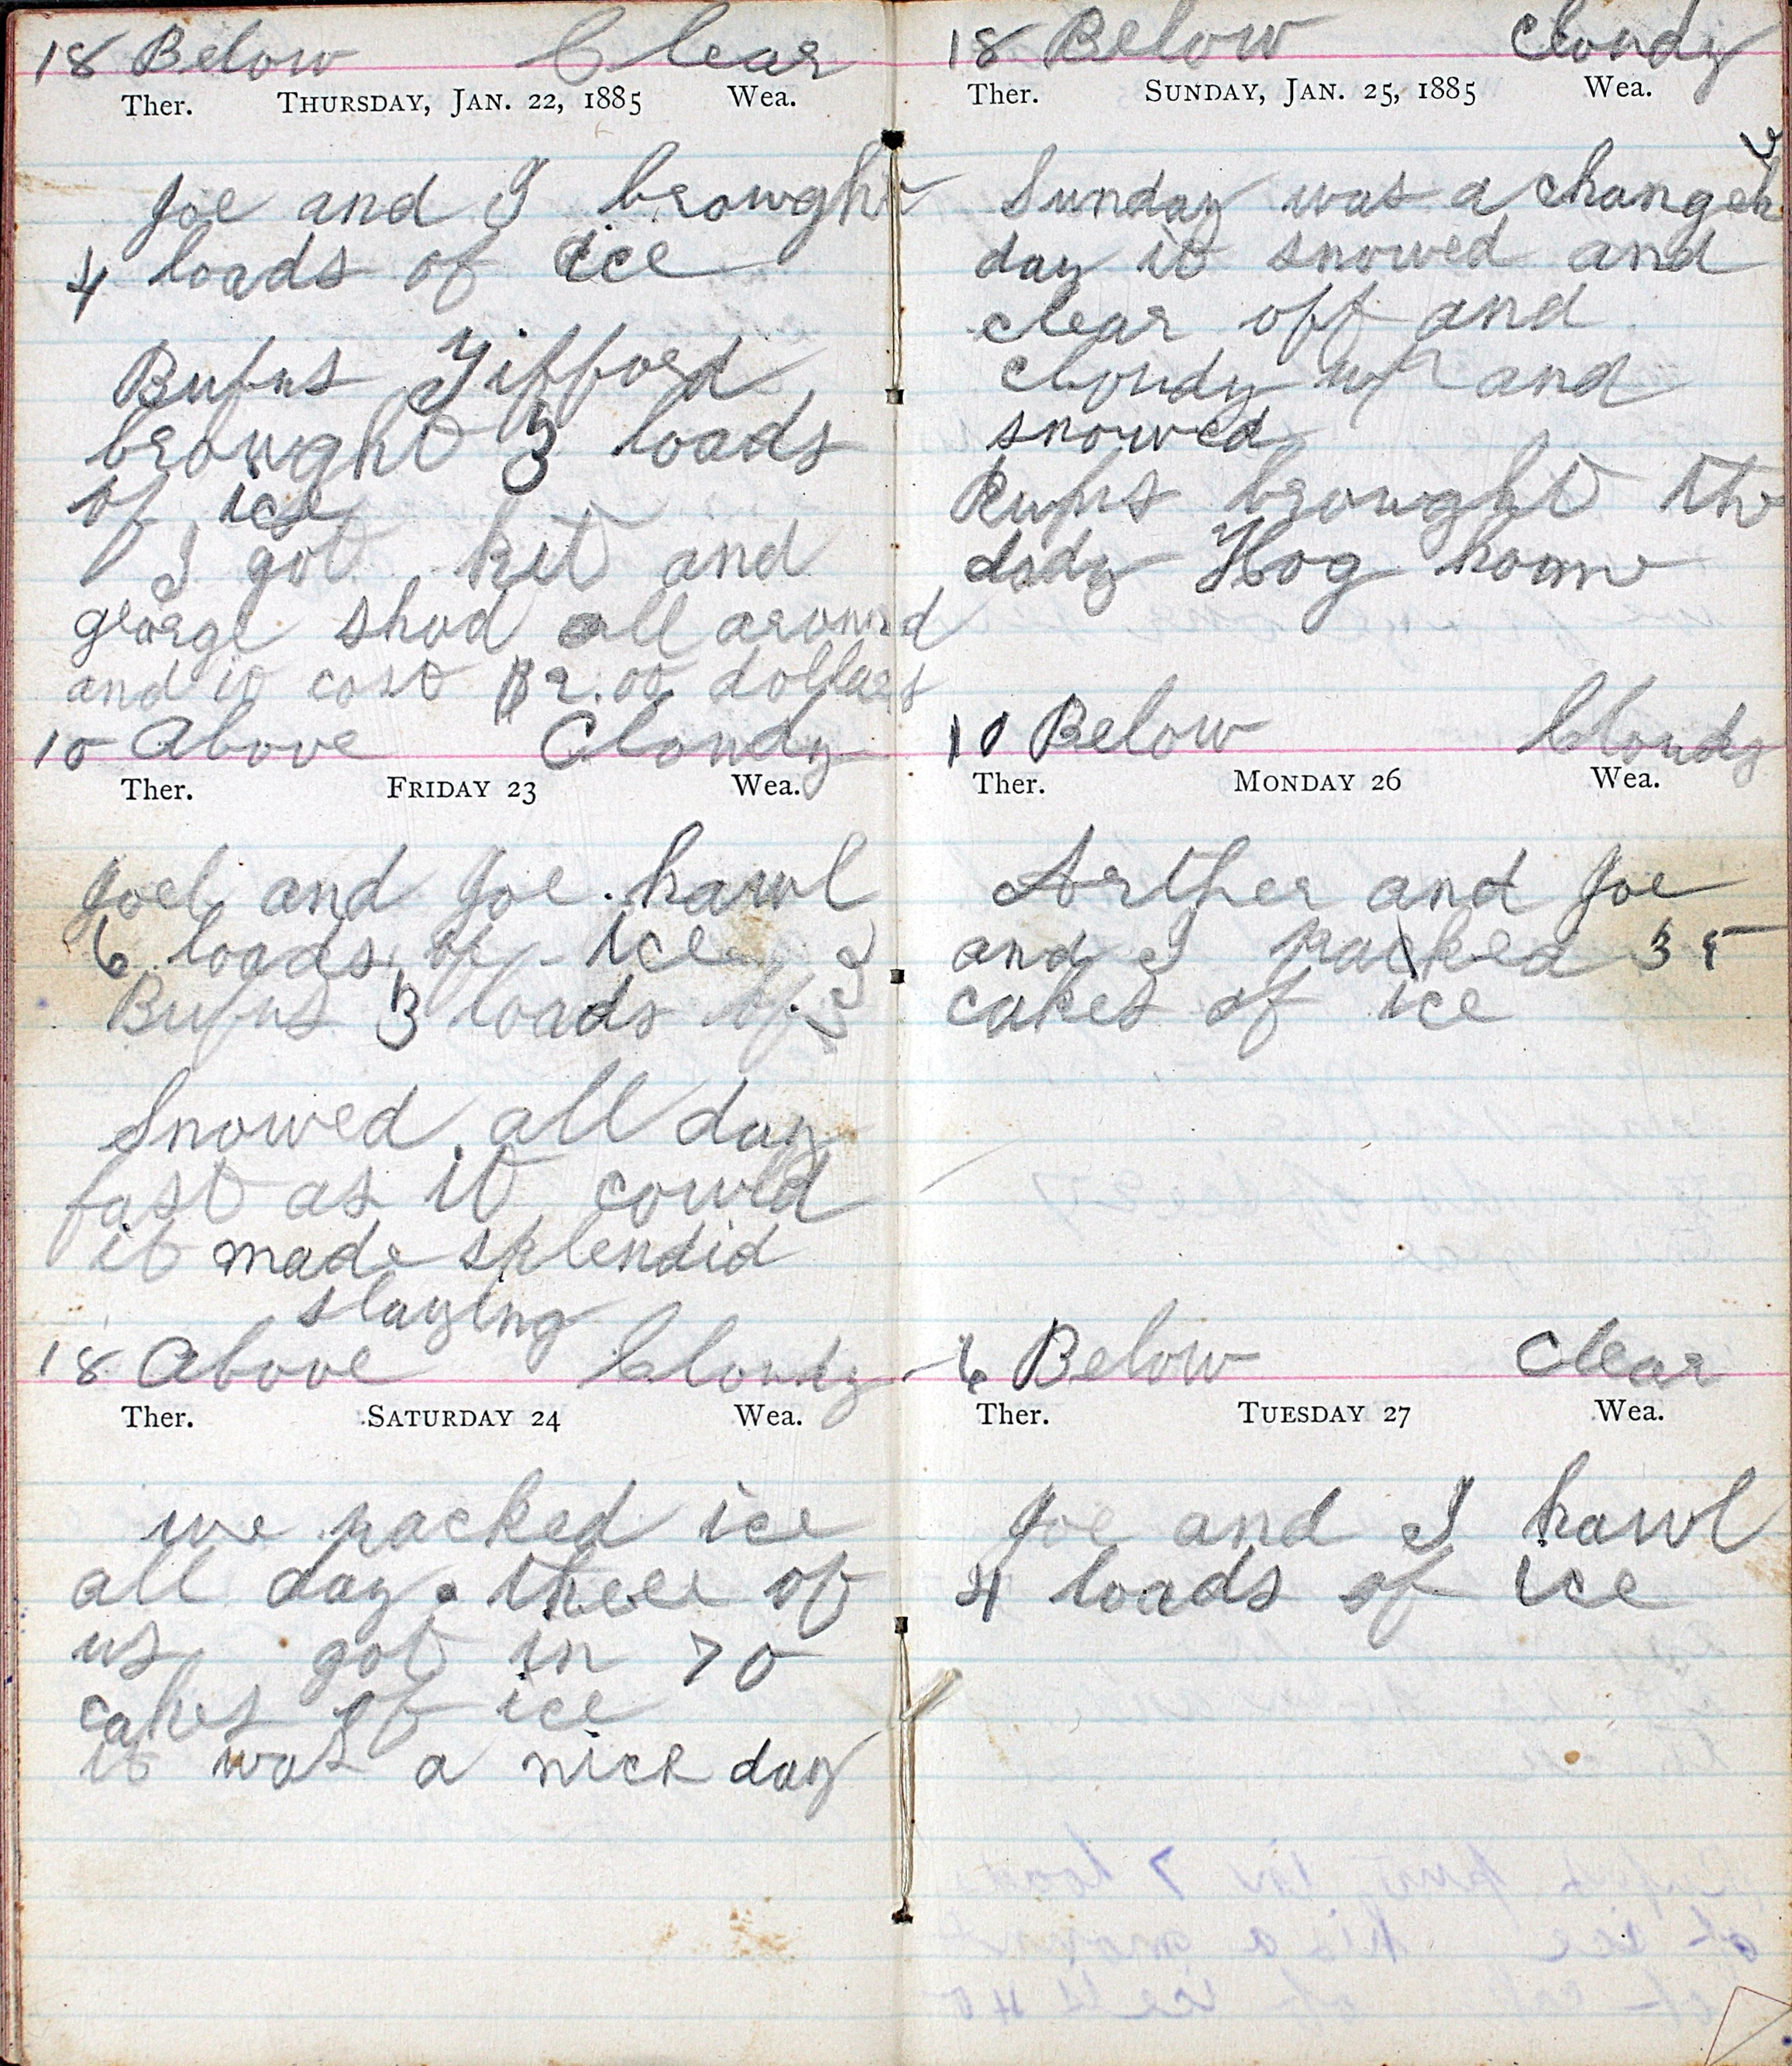 18 Below Clear
Ther. THURSDAY, JAN. 22, 1885 Wea.
Joe and I browght
4 loads of ice
Rufus Gifford
browght 3 loads
of ice
I got kit and
george shod all around
and it cost $2.00 dollars
10 Above Cloudy
Ther. FRIDAY 23 Wea.
Joel and Joe hawl
6 loads of ice
Rufus 3 loads of
Snowed all day
fast as it cowld
it made splendid
slaying
18 Above Cloudy
Ther. SATURDAY 24 Wea.
we packed ice
all day three of
us got in 70
cakes of ice
it was a nice day
18 Below Cloudy
Ther. SUNDAY, JAN. 25, 1885 Wea.
Sunday was a
day it snowed and
clear off and
cloudy up and
snowed
Rufus browght the
Hog home
10 Below Cloudy
Ther. MONDAY 26 Wea.
Arther and Joe
and I packed 35
cakes of ice
6 Below Clear
Ther. TUESDAY 27 Wea.
Joe and I hawl
4 loads of ice